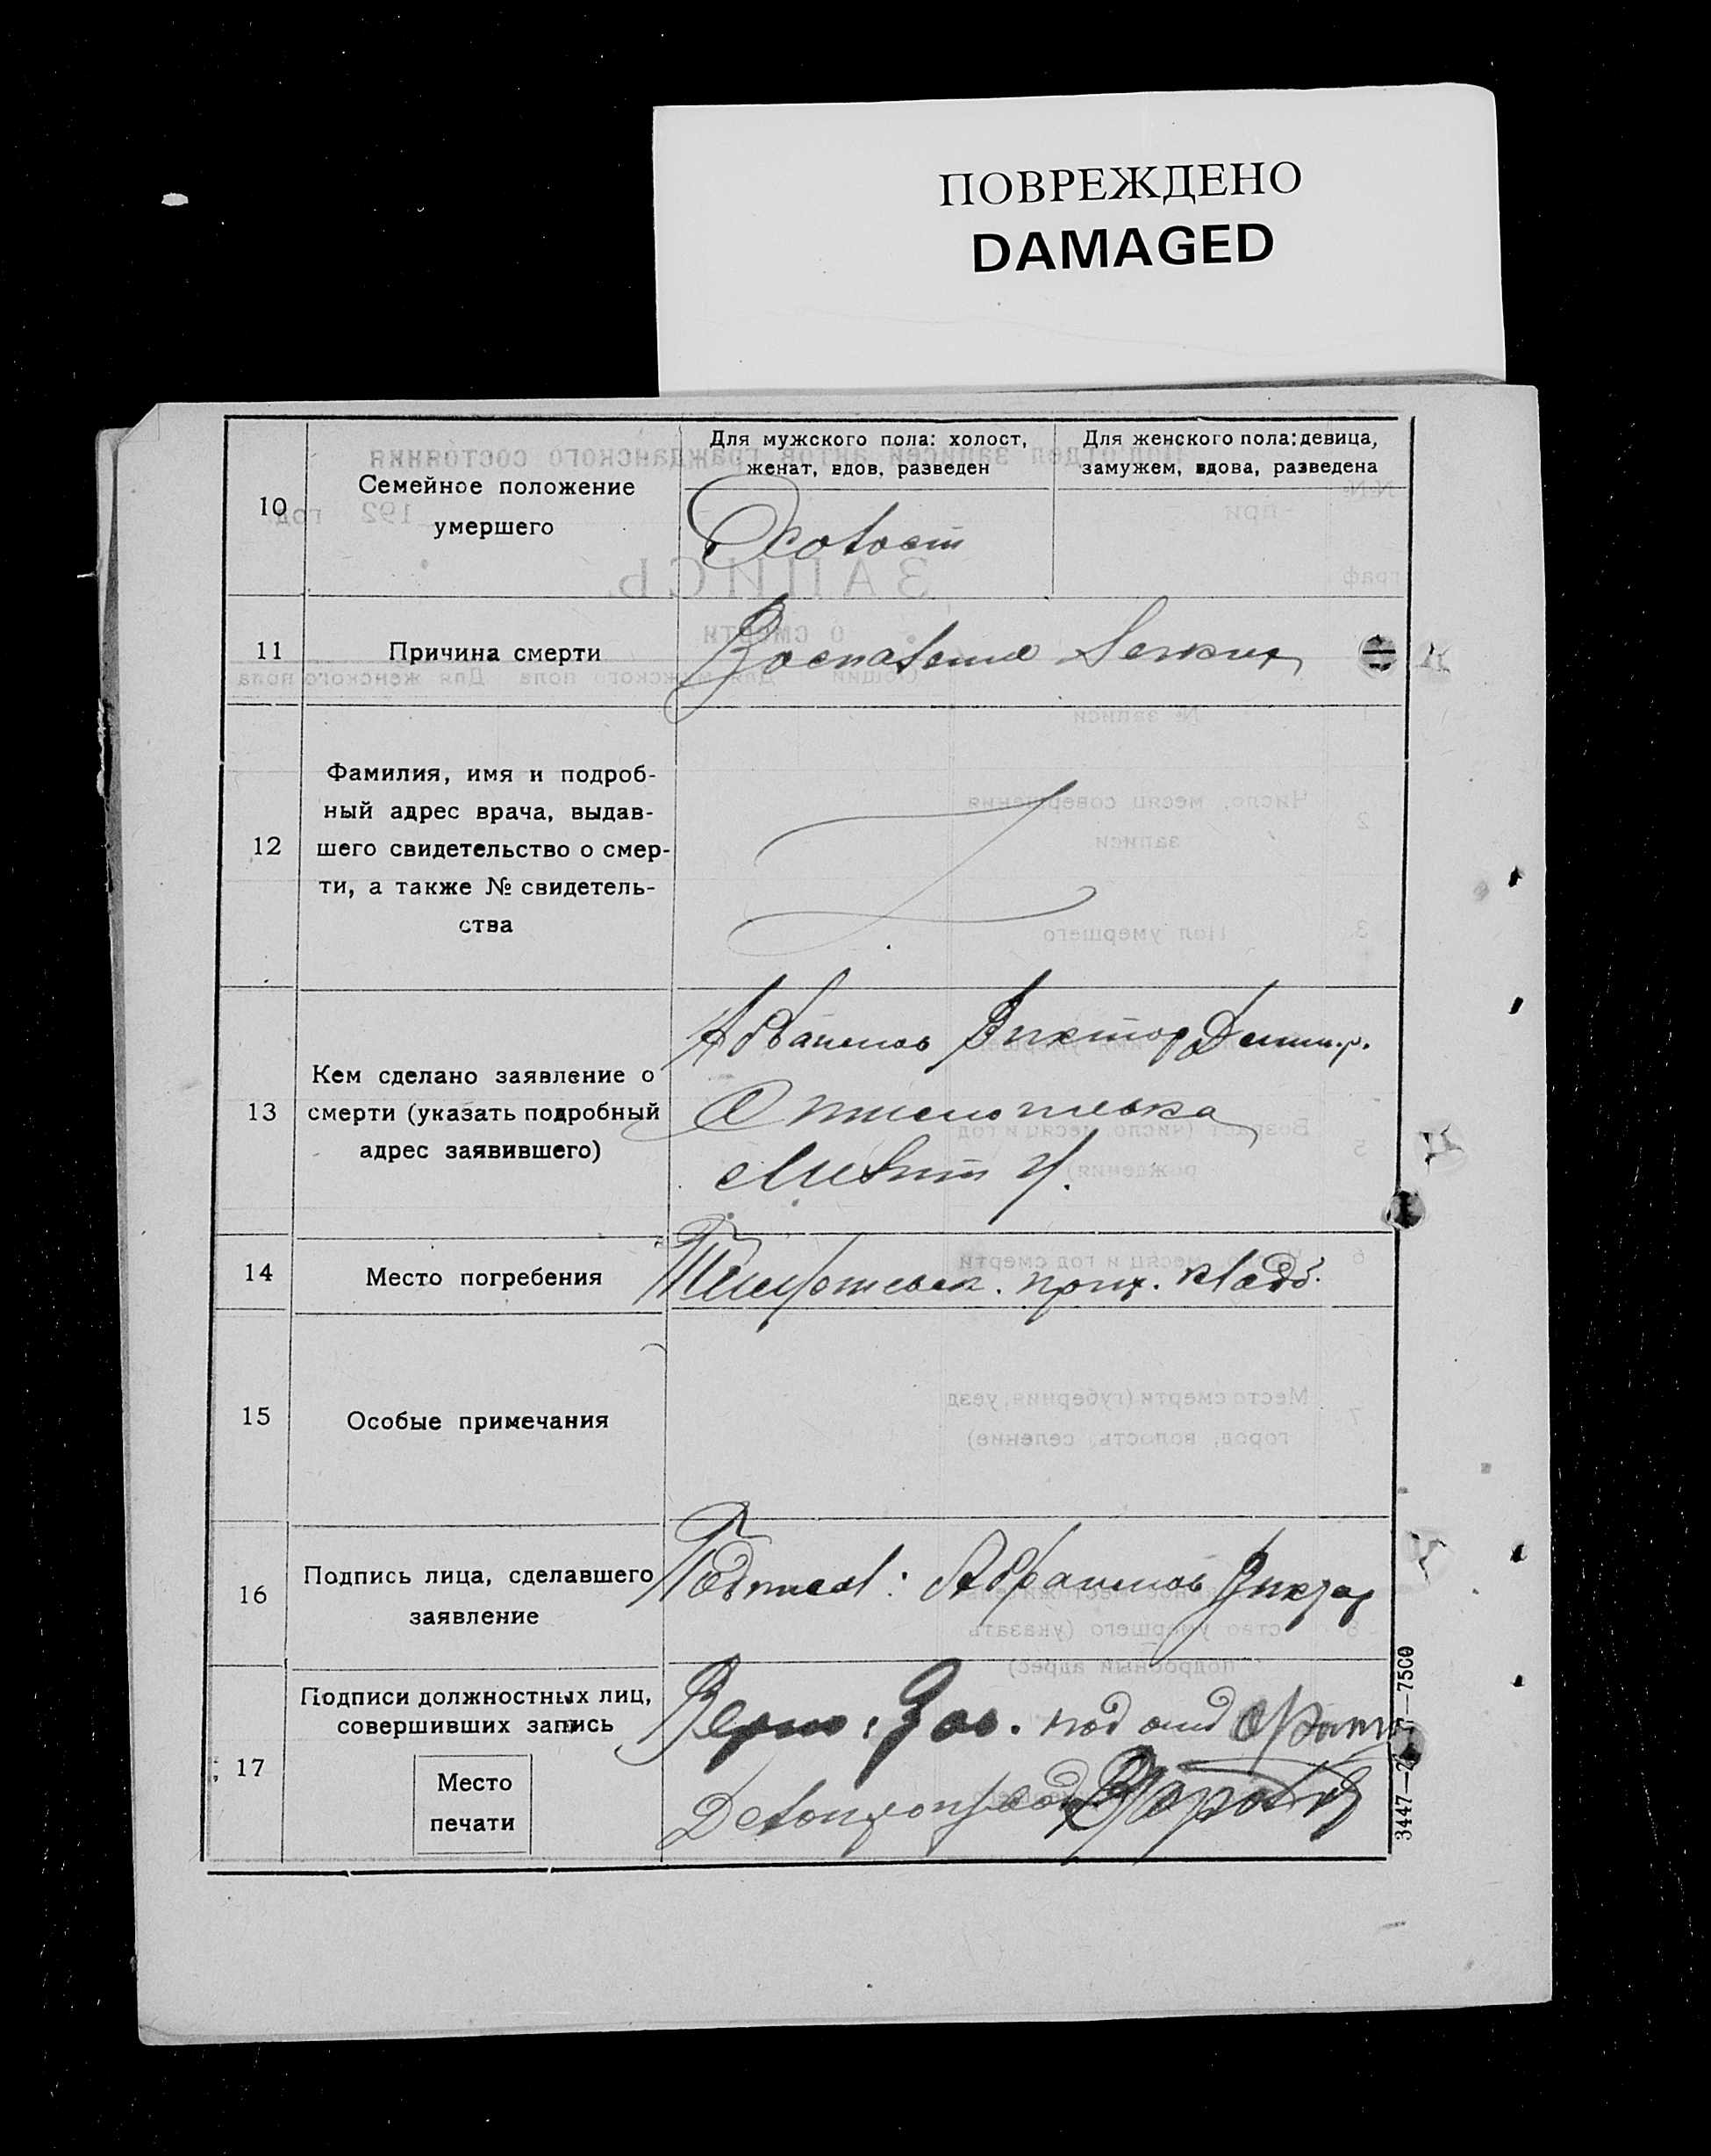 ПОВРЕЖДЕНО
DAMAGED
10
Семейное положение
умершего
Для мужского пола: холост,
женат, вдов, разведен
Для женского пола: девица,
замужем, вдова, разведена
Холост
11
Причина смерти
Воспаление легких
12
Фамилия, имя и подроб-
ный адрес врача, выдав-
шего свидетельство о смер-
ти, а также № свидетель-
ства
13
Кем сделано заявление о
смерти (указать подробный
адрес заявившего)
Абраменов Виктор
14
Место погребения
кладб.
15
Особые примечания
16
Подпись лица, сделавшего
заявление
Подписал: Абраменов Виктор
17
Подписи должностных лиц,
совершивших запись
Место
печати
Верно: Зав. под
Делопроизвод